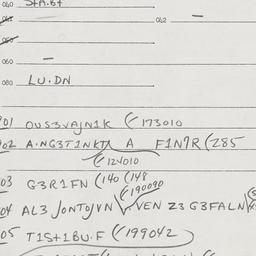 040 STA.BT
042 —
060 —
080 LU.DN
901 OUS3VAJN1K (173010
902 A.NG3T1NKTA A F1N9R (285
(124010
03 G3R1FN (140 (148
(190090
04 AL3 JONTOJVN VEN Z3 G3FALN
05 T1ST1BU.F (199042